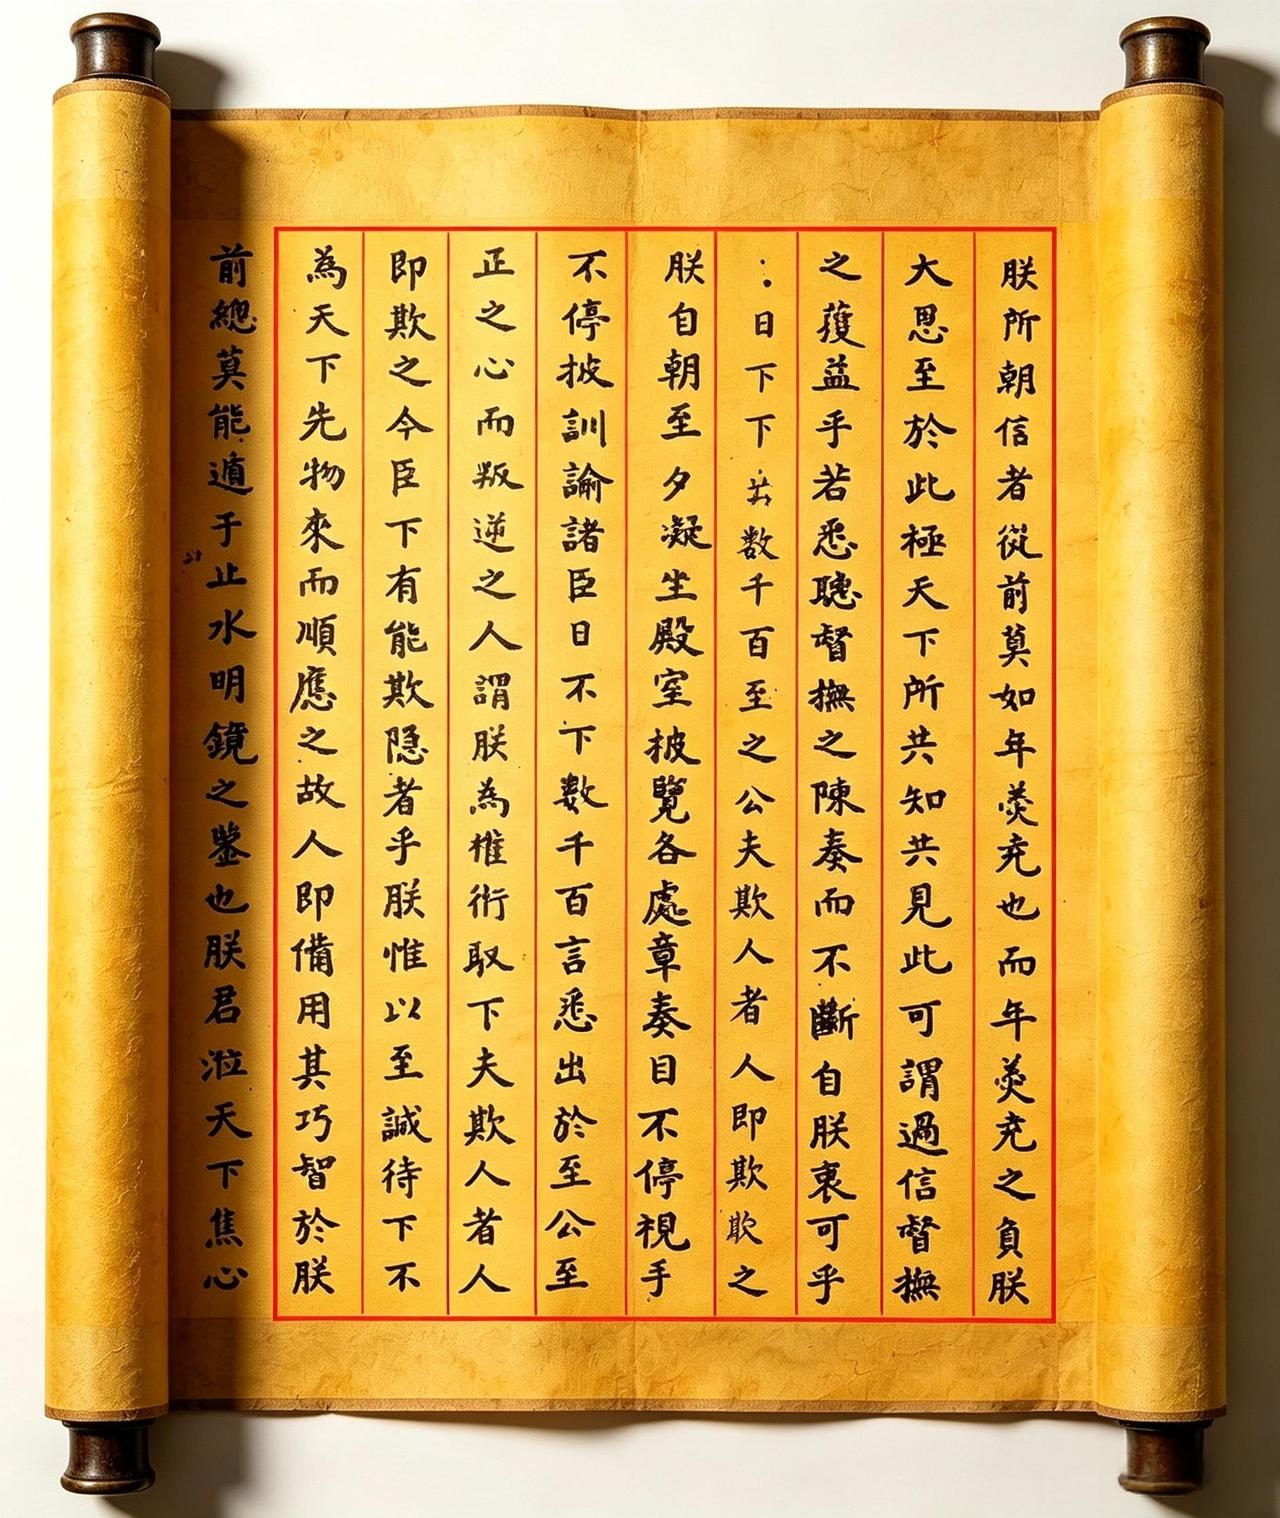 朕所朝信者從前莫如年羮充也而年羮充之負朕
大恩至於此極天下所共知共見此可謂過信督撫
之獲益乎若悉聽督撫之陳奏而不斷自朕衷可乎
日下下数千百至之公夫欺人者人即欺欺之
朕自朝至夕凝坐殿室披覽各處章奏目不停視手
不停披訓諭諸臣日不下數千百言悉出於至公至
正之心而叛逆之人謂朕為權術馭下夫欺人者人
即欺之今臣下有能欺隐者乎朕惟以至誠待下不
為天下先物來而順應之故人即備用其巧智於朕
前總莫能遁于止水明鏡之鑒也朕君涖天下焦心